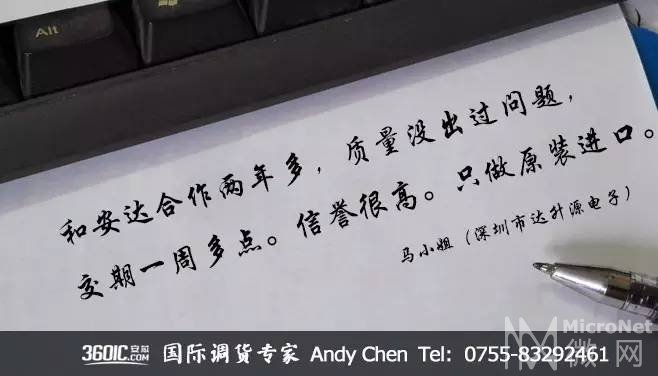 Alt
和安达合作两年多，质量没出过问题，
交期一周多点。信誉很高。只做原装进口。
马小姐（深圳市达升源电子）
360IC安芯.COM 国际调货专家 Andy Chen Tel: 0755-83292461
MicroNet
微网